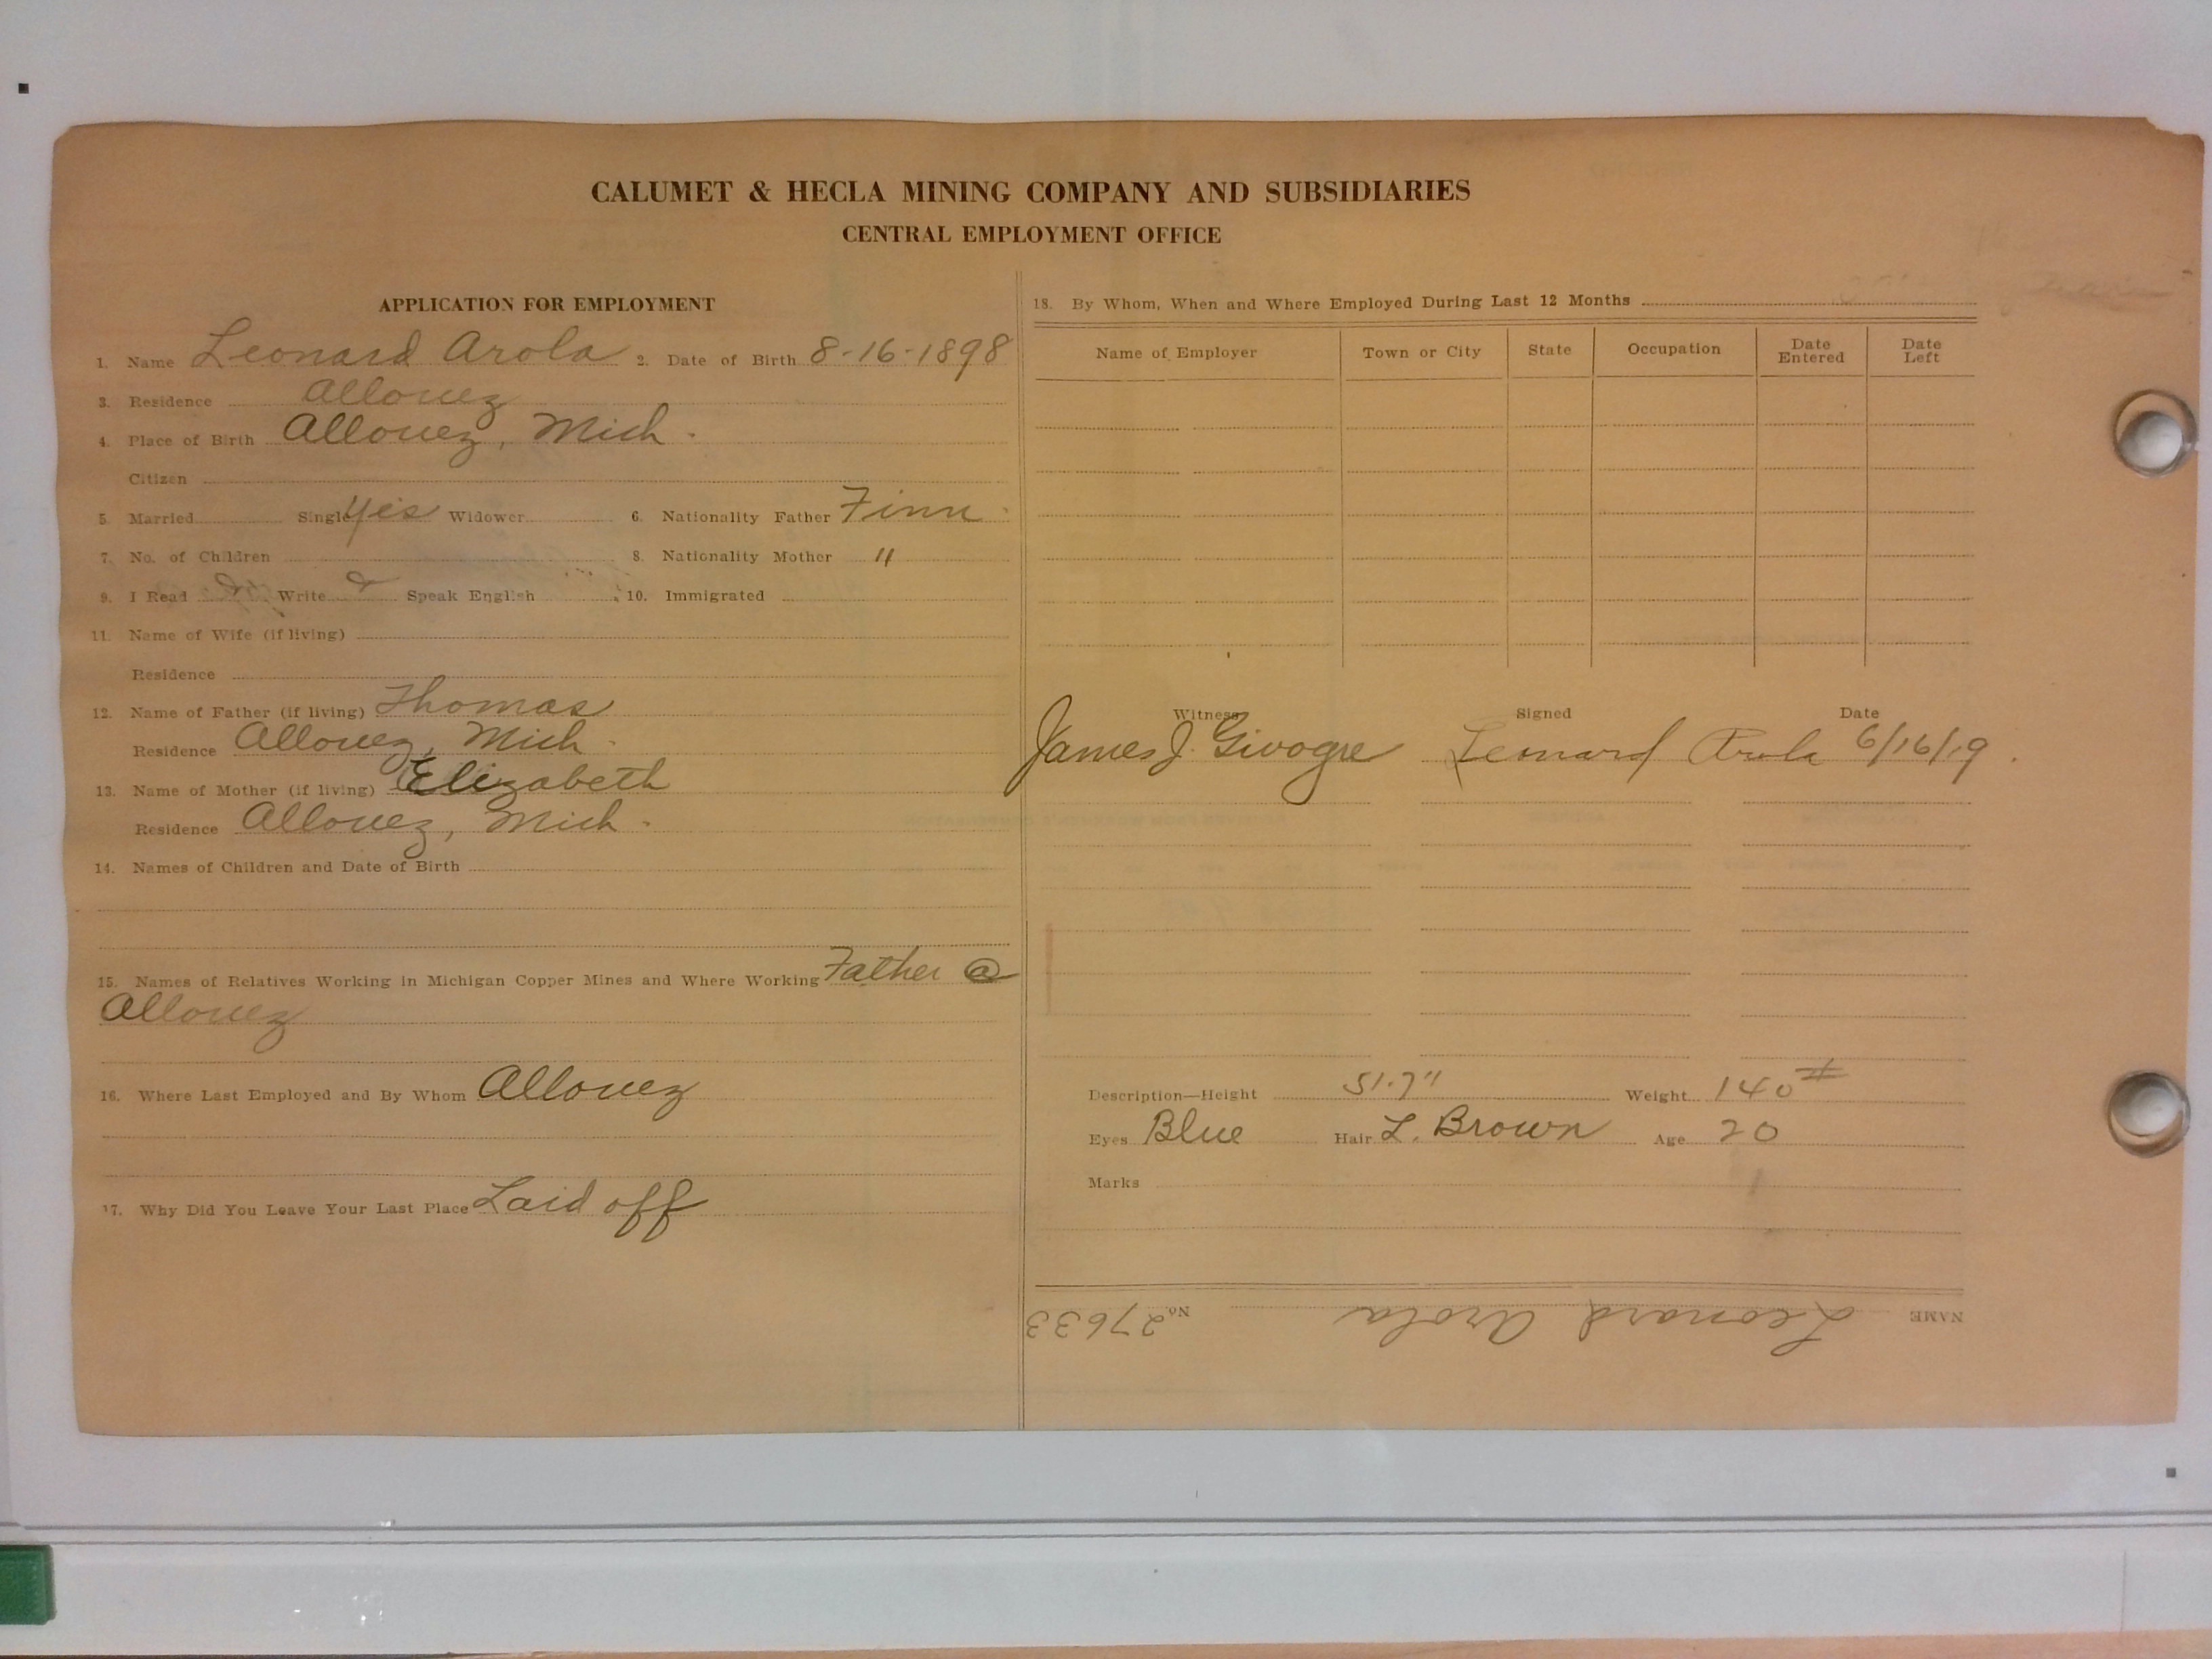 CALUMET & HECLA MINING COMPANY AND SUBSIDIARIES
CENTRAL EMPLOYMENT OFFICE
APPLICATION FOR EMPLOYMENT
1. Name Leonard Arola 2. Date of Birth 8-16-1898
3. Residence Allouez
4. Place of Birth Allouez, Mich.
Citizen
5. Married Single Yes Widower 6. Nationality Father Finn
7. No. of Children 8. Nationality Mother "
9. I Read & Write & Speak English 10. Immigrated
11. Name of Wife (if living)
Residence
12. Name of Father (if living) Thomas
Residence Allouez, Mich.
13. Name of Mother (if living) Elizabeth
Residence Allouez, Mich.
14. Names of Children and Date of Birth
15. Names of Relatives Working in Michigan Copper Mines and Where Working Father @
Allouez
16. Where Last Employed and By Whom Allouez
17. Why Did You Leave Your Last Place Laid off
18. By Whom, When and Where Employed During Last 12 Months
Name of Employer Town or City State Occupation Date Entered Date Left
Witness Signed Date
James J. Givogre Leonard Arola 6/16/19
Description—Height 5'.7" Weight 140#
Eyes Blue Hair L. Brown Age 20
Marks
NAME Leonard Arola No. 27633